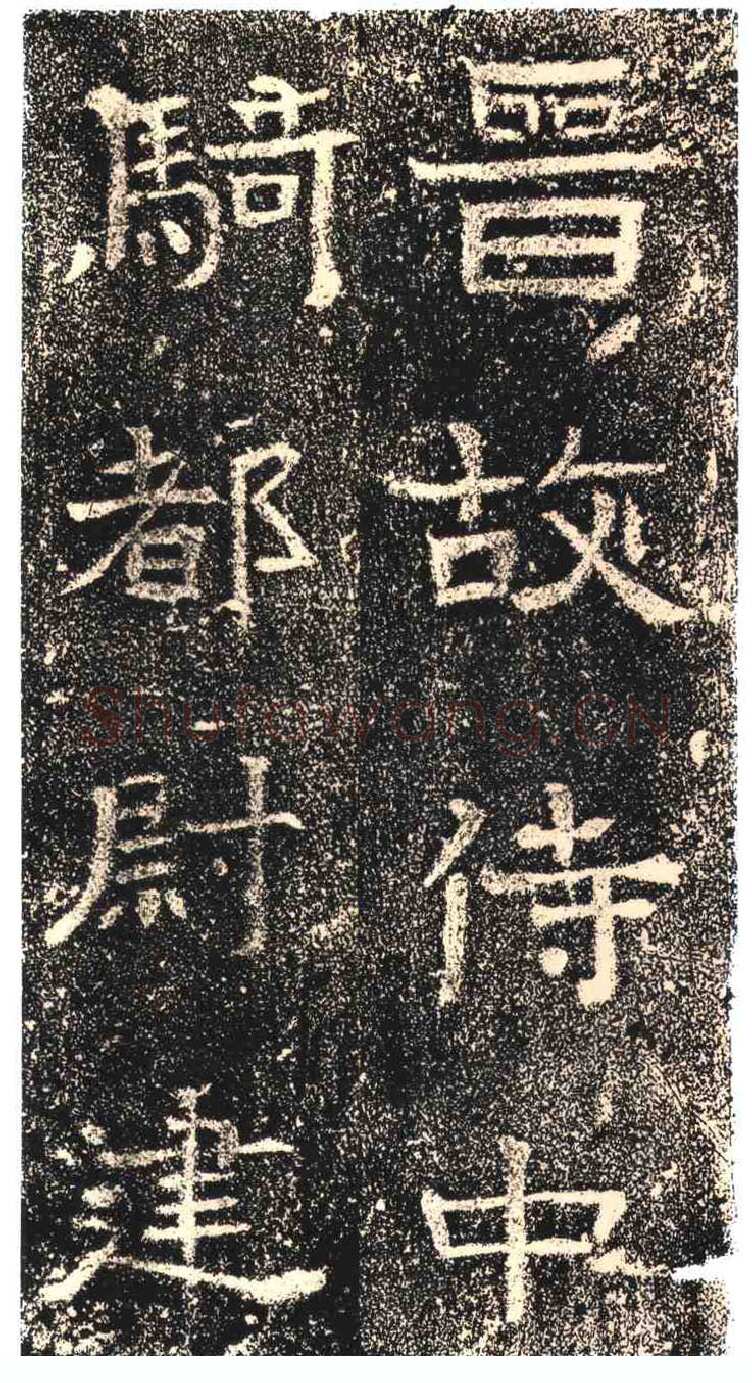 晉故侍中
騎都尉建
Shufawang.CN